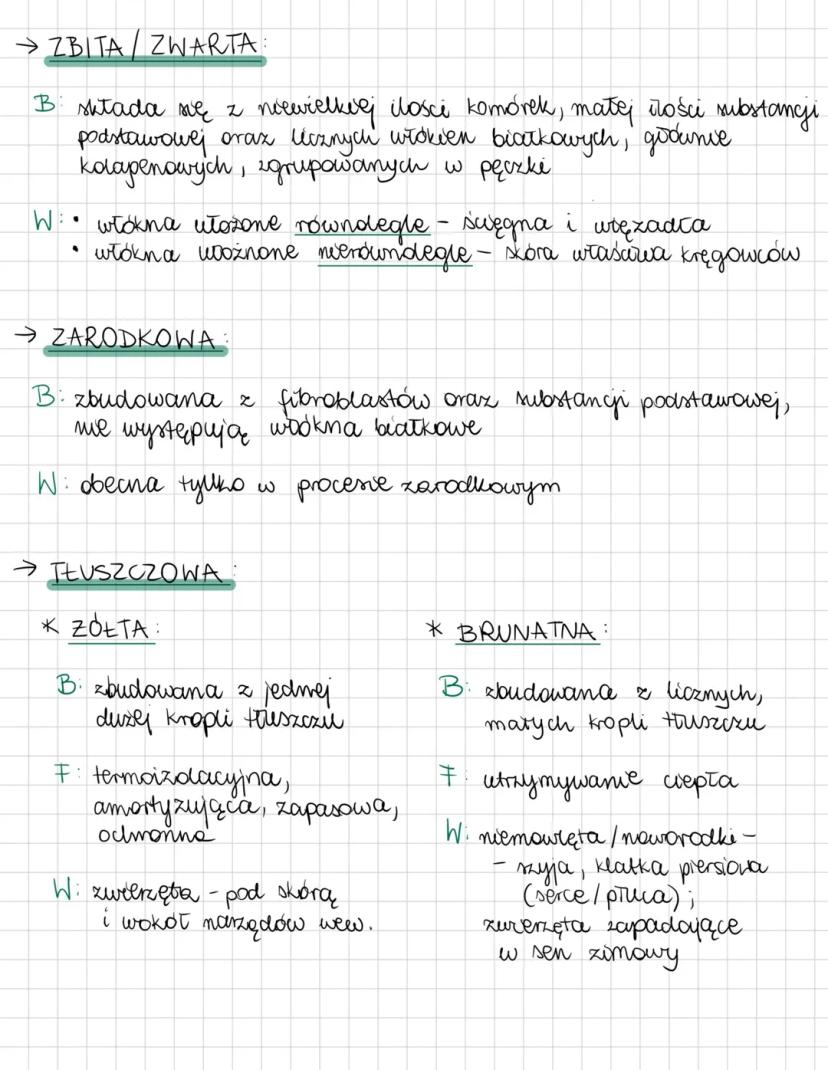 → ZBITA / ZWARTA:
B: składa się z niewielkiej ilości komórek, małej ilości substancji
podstawowej oraz licznych włókien białkowych, głównie
kolagenowych, zgrupowanych w pęczki
W: • włókna ułożone równolegle – ścięgna i więzadła
• włókna ułożnone nierównolegle – skóra właściwa kręgowców
→ ZARODKOWA:
B: zbudowana z fibroblastów oraz substancji podstawowej,
nie występują włókna białkowe
W: obecna tylko w procesie zarodkowym
→ TŁUSZCZOWA:
* ŻÓŁTA:
B: zbudowana z jednej
dużej kropli tłuszczu
F: termoizolacyjna,
amortyzująca, zapasowa,
ochronna
W: zwierzęta – pod skórą
i wokół narządów wew.
* BRUNATNA:
B: zbudowana z licznych,
małych kropli tłuszczu
F: utrzymywanie ciepła
W: niemowlęta / noworodki –
– szyja, klatka piersiowa
(serce / płuca);
zwierzęta zapadające
w sen zimowy